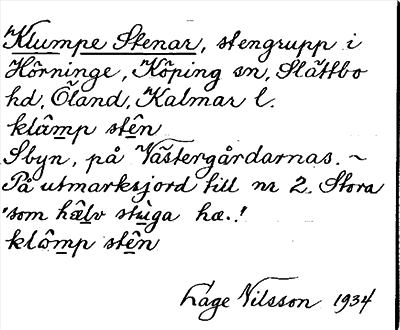 Klumpe Stenar, stengrupp i
Hörninge, Köping sn, Slättbo
hd, Öland, Kalmar l.
klâm̲p stên̲
Sbyn, på Västergårdarnas. ~
På utmarksjord till nr 2. Stora
"som hæ̂l̲v stùga hæ.!
klôm̲p stên̲
Åage Nilsson 1934